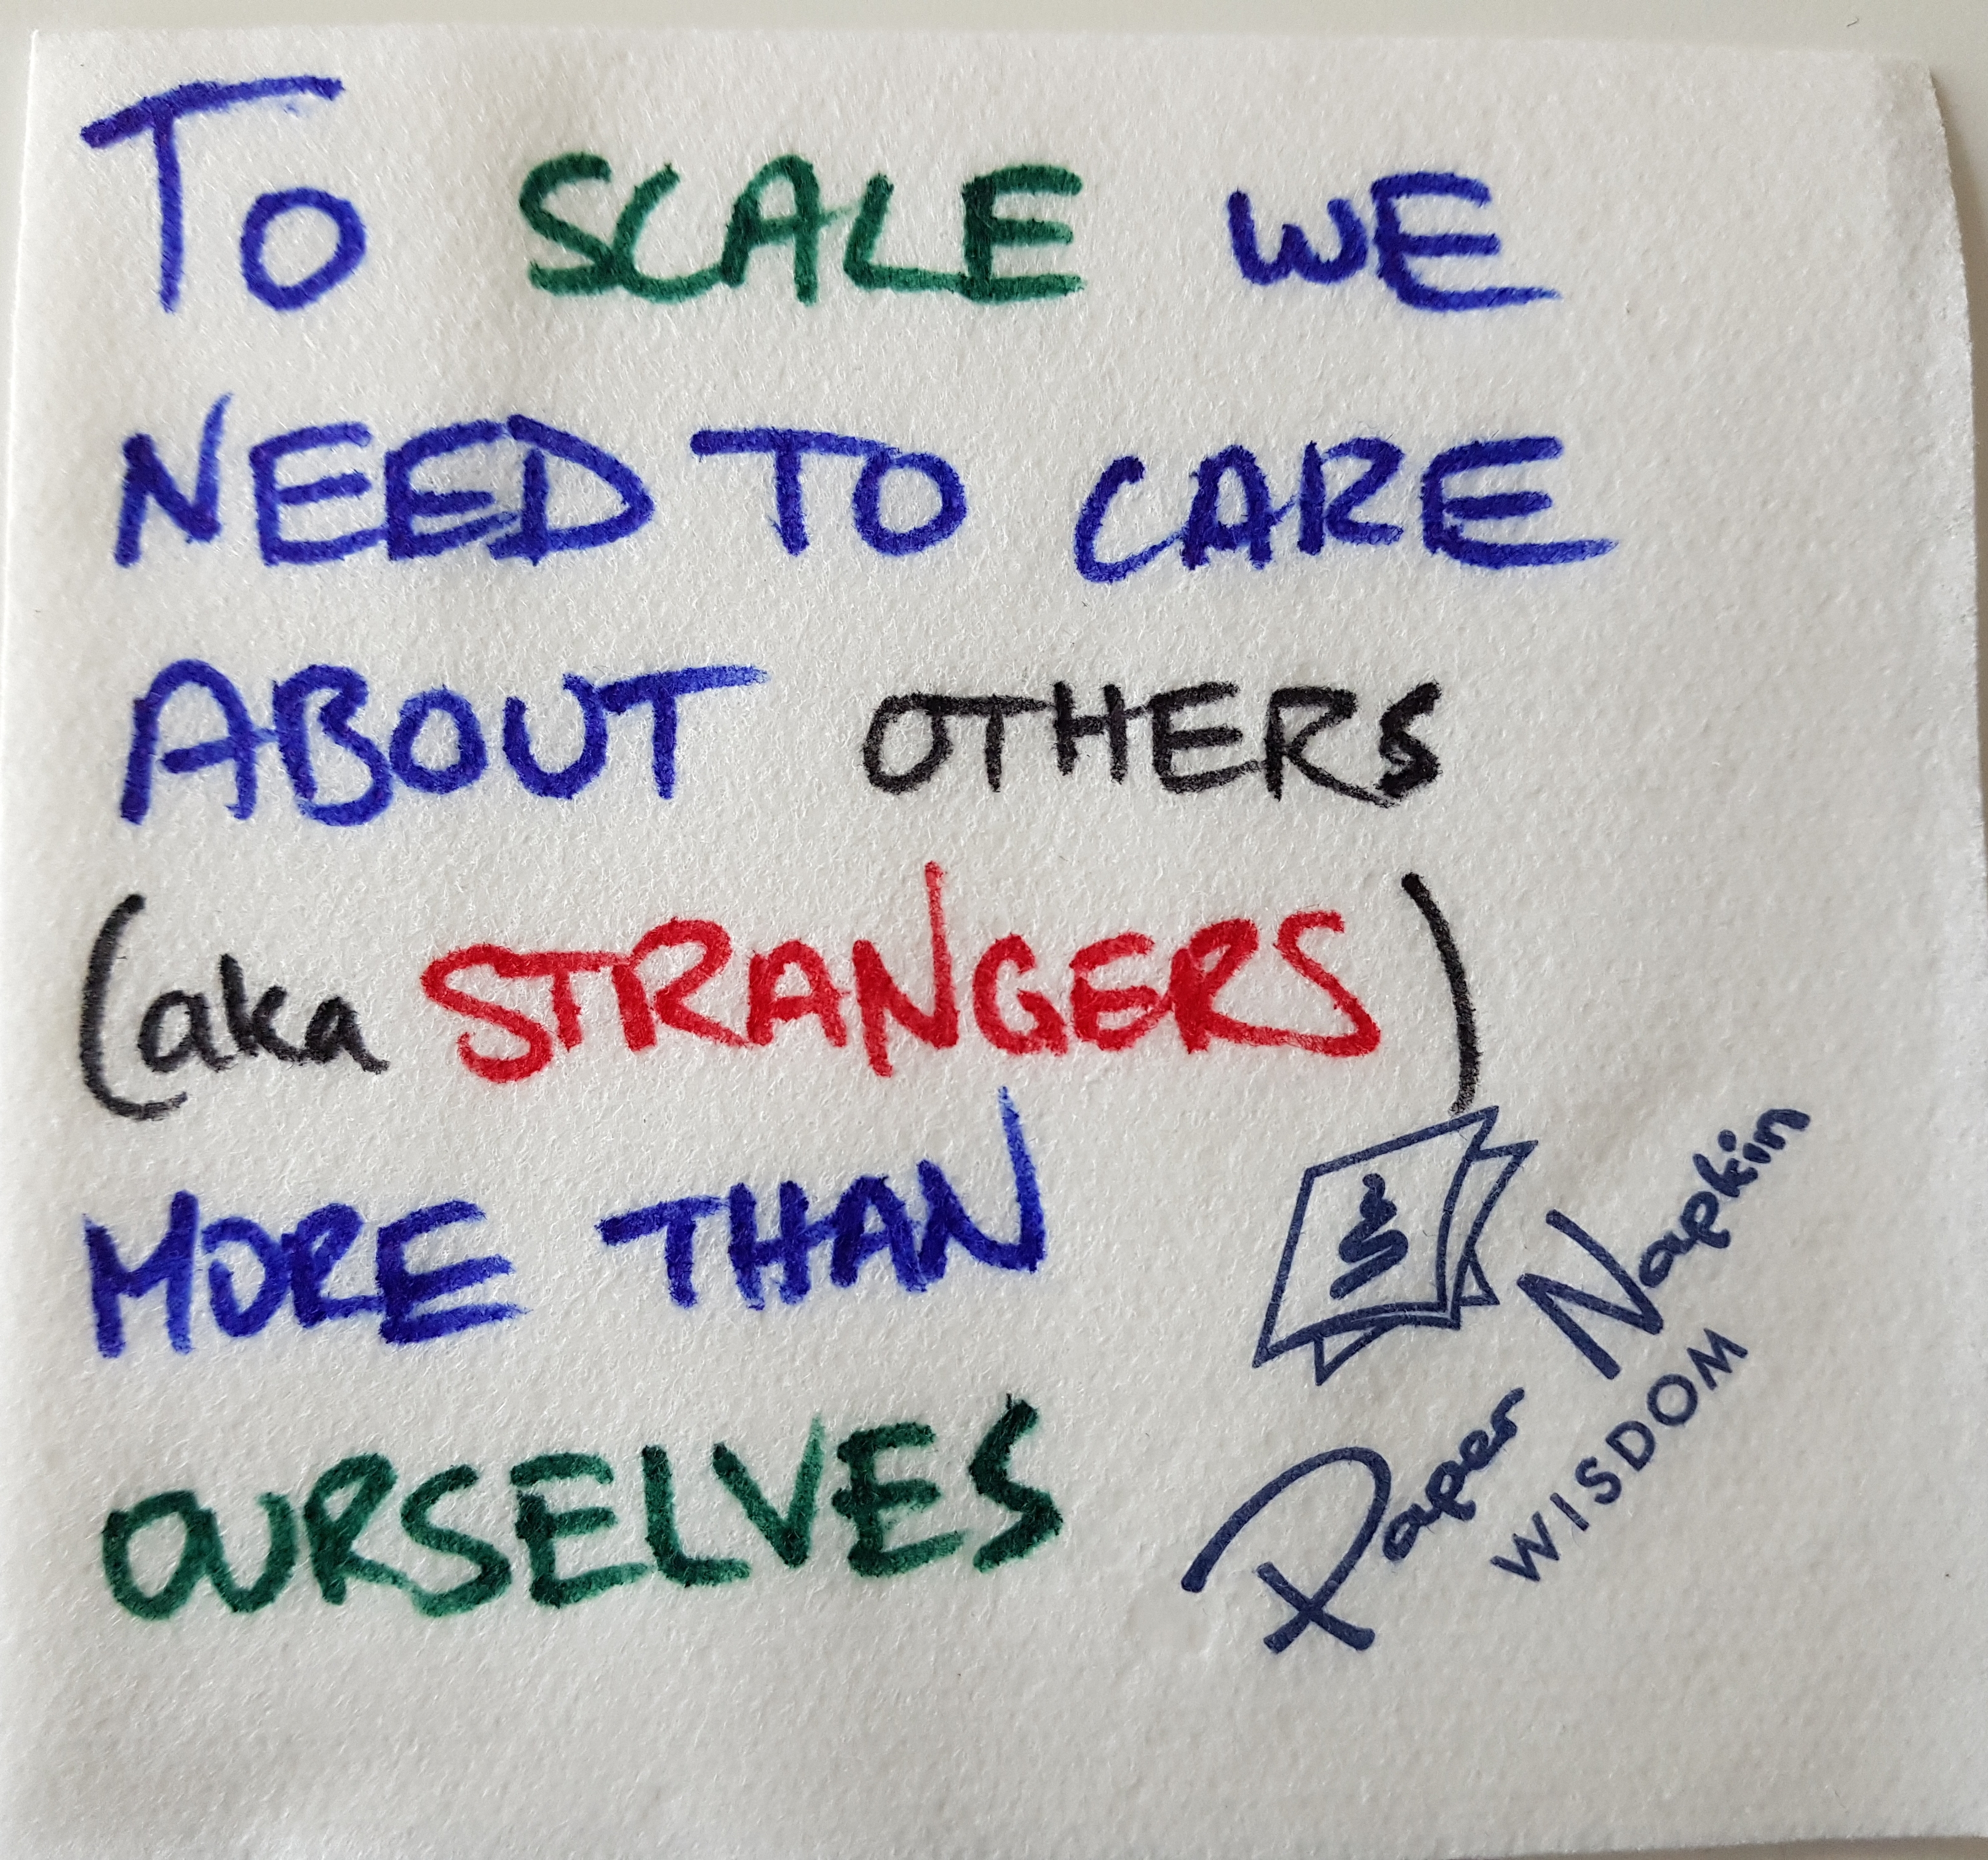 To SCALE WE
NEED TO CARE
ABOUT OTHERS
(aka STRANGERS)
MORE THAN
OURSELVES
Paper Napkin
WISDOM